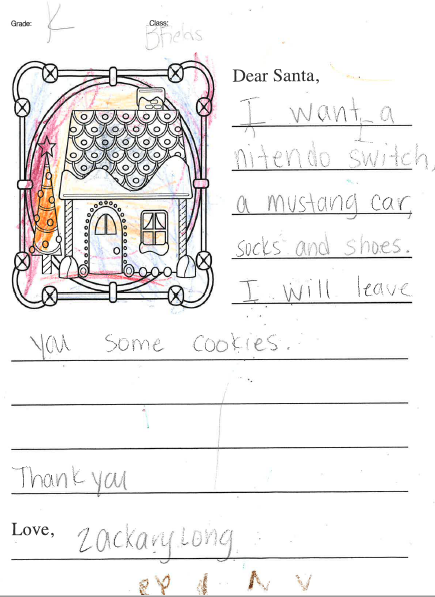 Grade: K Class:
Dear Santa,
I want a
nitendo switch,
a mustang car,
socks and shoes.
I will leave
you some cookies.
Thank you
Love, Zackary Long